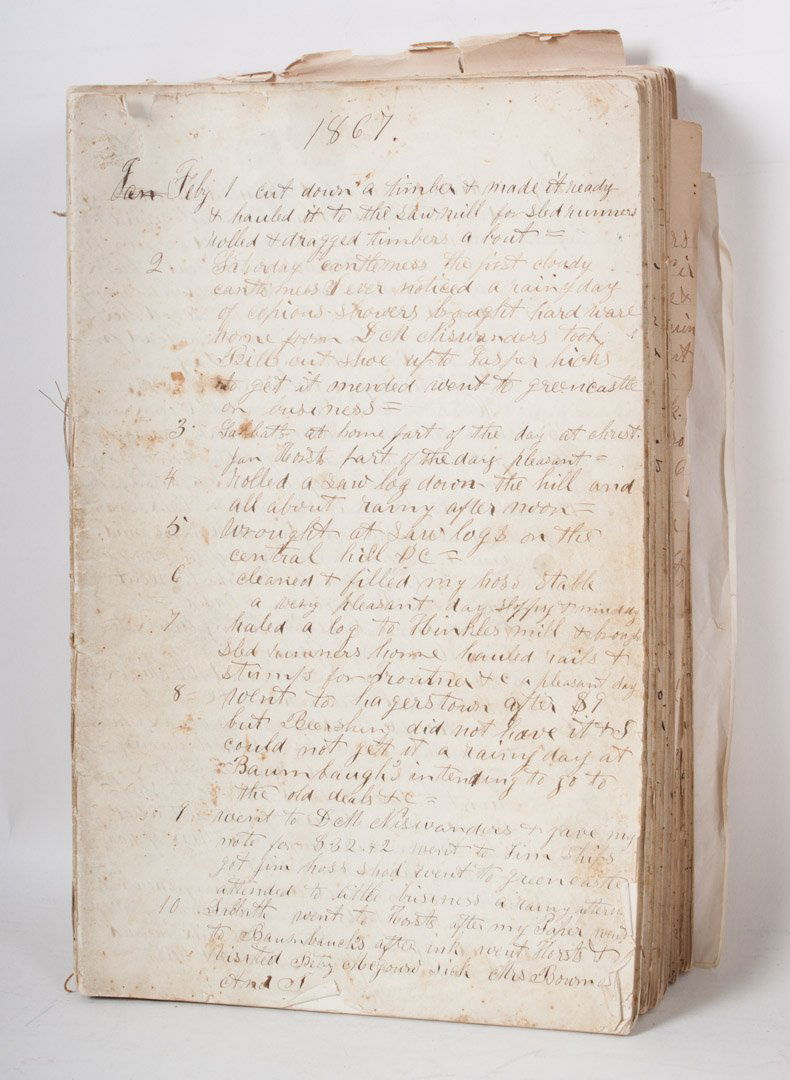 1867.
Jan Feby 1 cut down a timber & made it ready
& hauled it to the sawmill for sled runners
rolled & dragged timbers a bout =
2 Saturday cantlemess the first cloudy
cantlemess I ever noticed a rainy day
of copious showers brought hardware
home from D M Niswanders took
cut shoe up to Gasper hicks
to get it mended went to greencastle
on business =
3 Sabbath at home part of the day at christ
Jan Horsts part of the day pleasant =
4 rolled a saw log down the hill and
all about rainy after noon =
5 wrought at saw logs on the
central hill &c =
6 cleaned & filled my hoss stable
a very pleasant day sloppy & muddy
7 haled a log to Hinkles mill & brough
sled runners home hauled rails &
stumps for & c a pleasant day
8 went to hagerstown after $9
but did not have it & I
could not get it a rainy day at
Baumbaugh's intending to go to
the old deals & c =
9 went to D M Niswanders & gave my
note for $32 & 2 went to Jim
got jim hoss shod went to greencastle
attended to little business a rainy aftern
10 went to Horsts after my Paper went
to Baumbaucks after ink went Horsts &
visited sick Mrs Bowman
And I